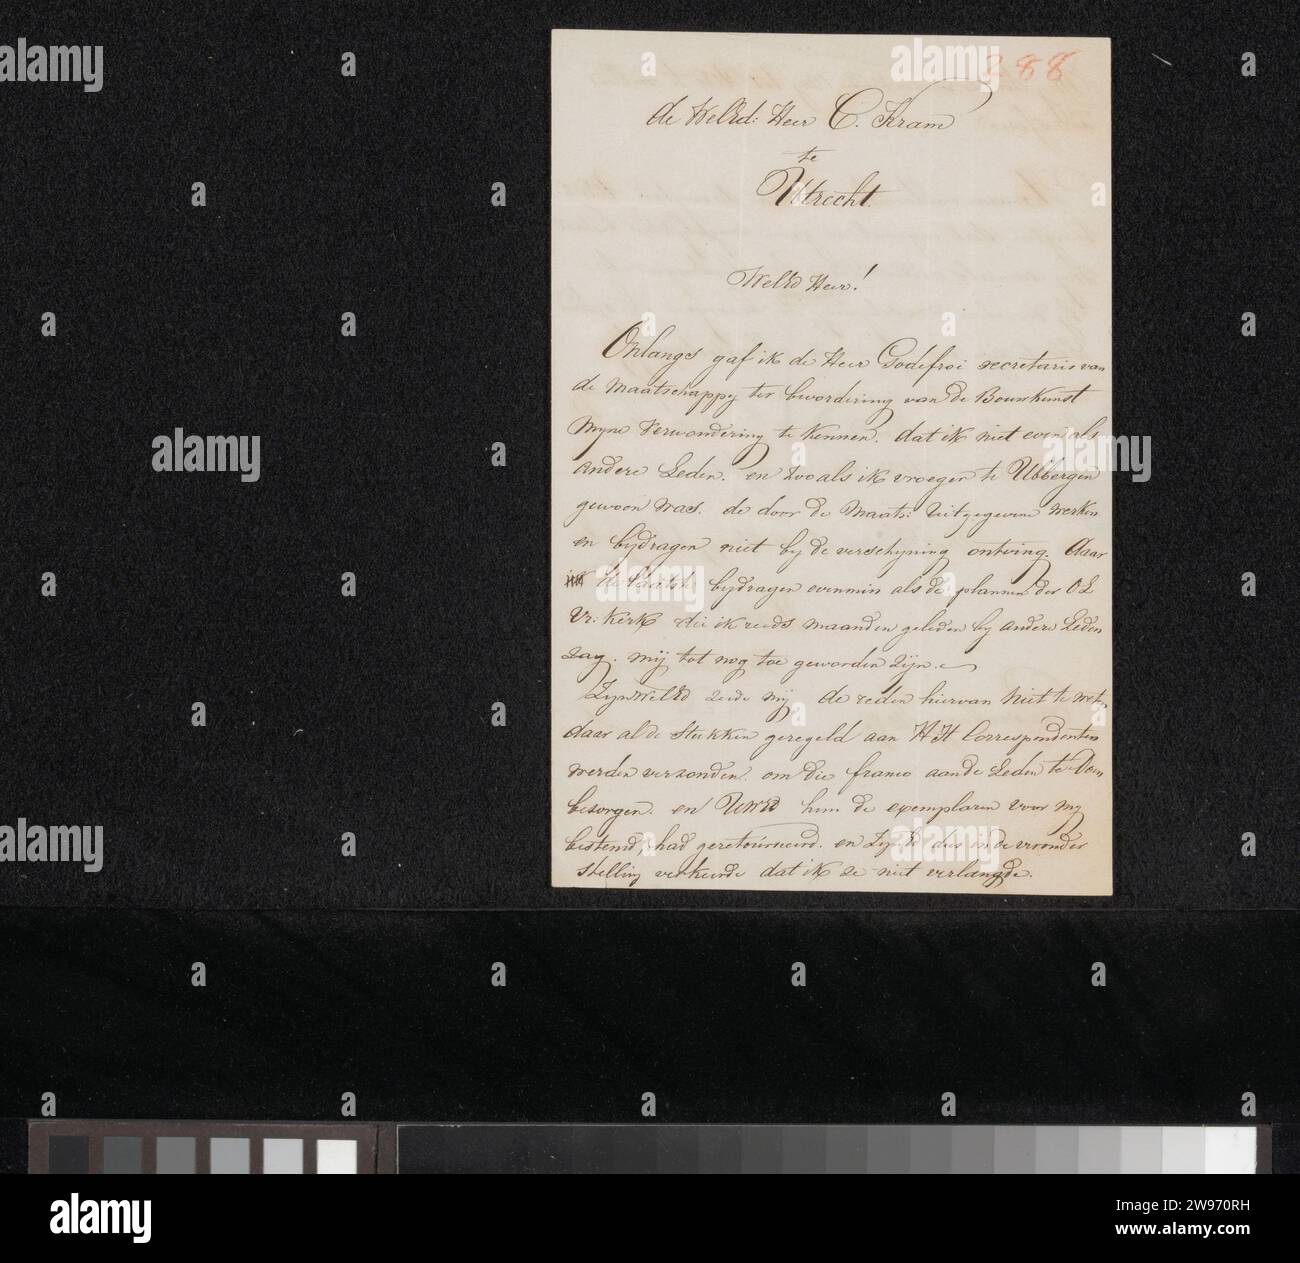 288
de WelEd: Heer C. Kram
te
Utrecht.
WelEd Heer!
Onlangs gaf ik de Heer Godefroi secretaris van
de Maatschappy ter bevordering van de Bouwkunst
myne Verwondering te kennen. dat ik niet even als
andere Leden. en zooals ik vroeger te Ubbergen
gewoon was. de door de Maats: uitgegevene werken
en bydragen niet by de verschyning ontving. daar
bydragen evenmin als de plannen der O L
Vr: Kerk die ik reeds maanden geleden by andere Leden
zag. mij tot nog toe geworden zijn.
ZynWelEd zeide mij de reden hiervan niet te weten
daar al de stukken geregeld aan HH Correspondenten
werden verzonden. om die franco aan de Leden te doen
bezorgen. en UWEd hem de exemplaren voor my
bestemd, had geretourneerd. en dus in de veronder
stelling verkeerde dat ik ze niet verlangde.
alamy
Image ID: 2W970RH
www.alamy.com